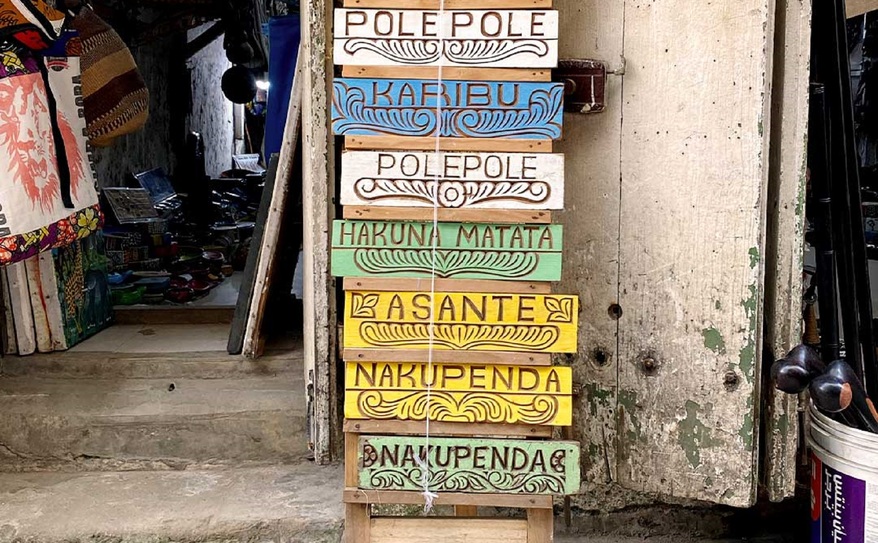 POLE POLE
KARIBU
POLEPOLE
HAKUNA MATATA
ASANTE
NAKUPENDA
NAKUPENDA